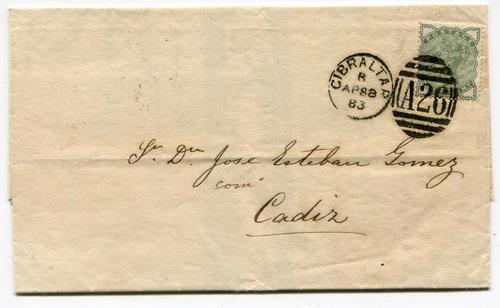 POSTAGE
GIBRALTAR
B
AP 8
83
A26
Sr Dn José Esteban Gomez
comº
Cadiz